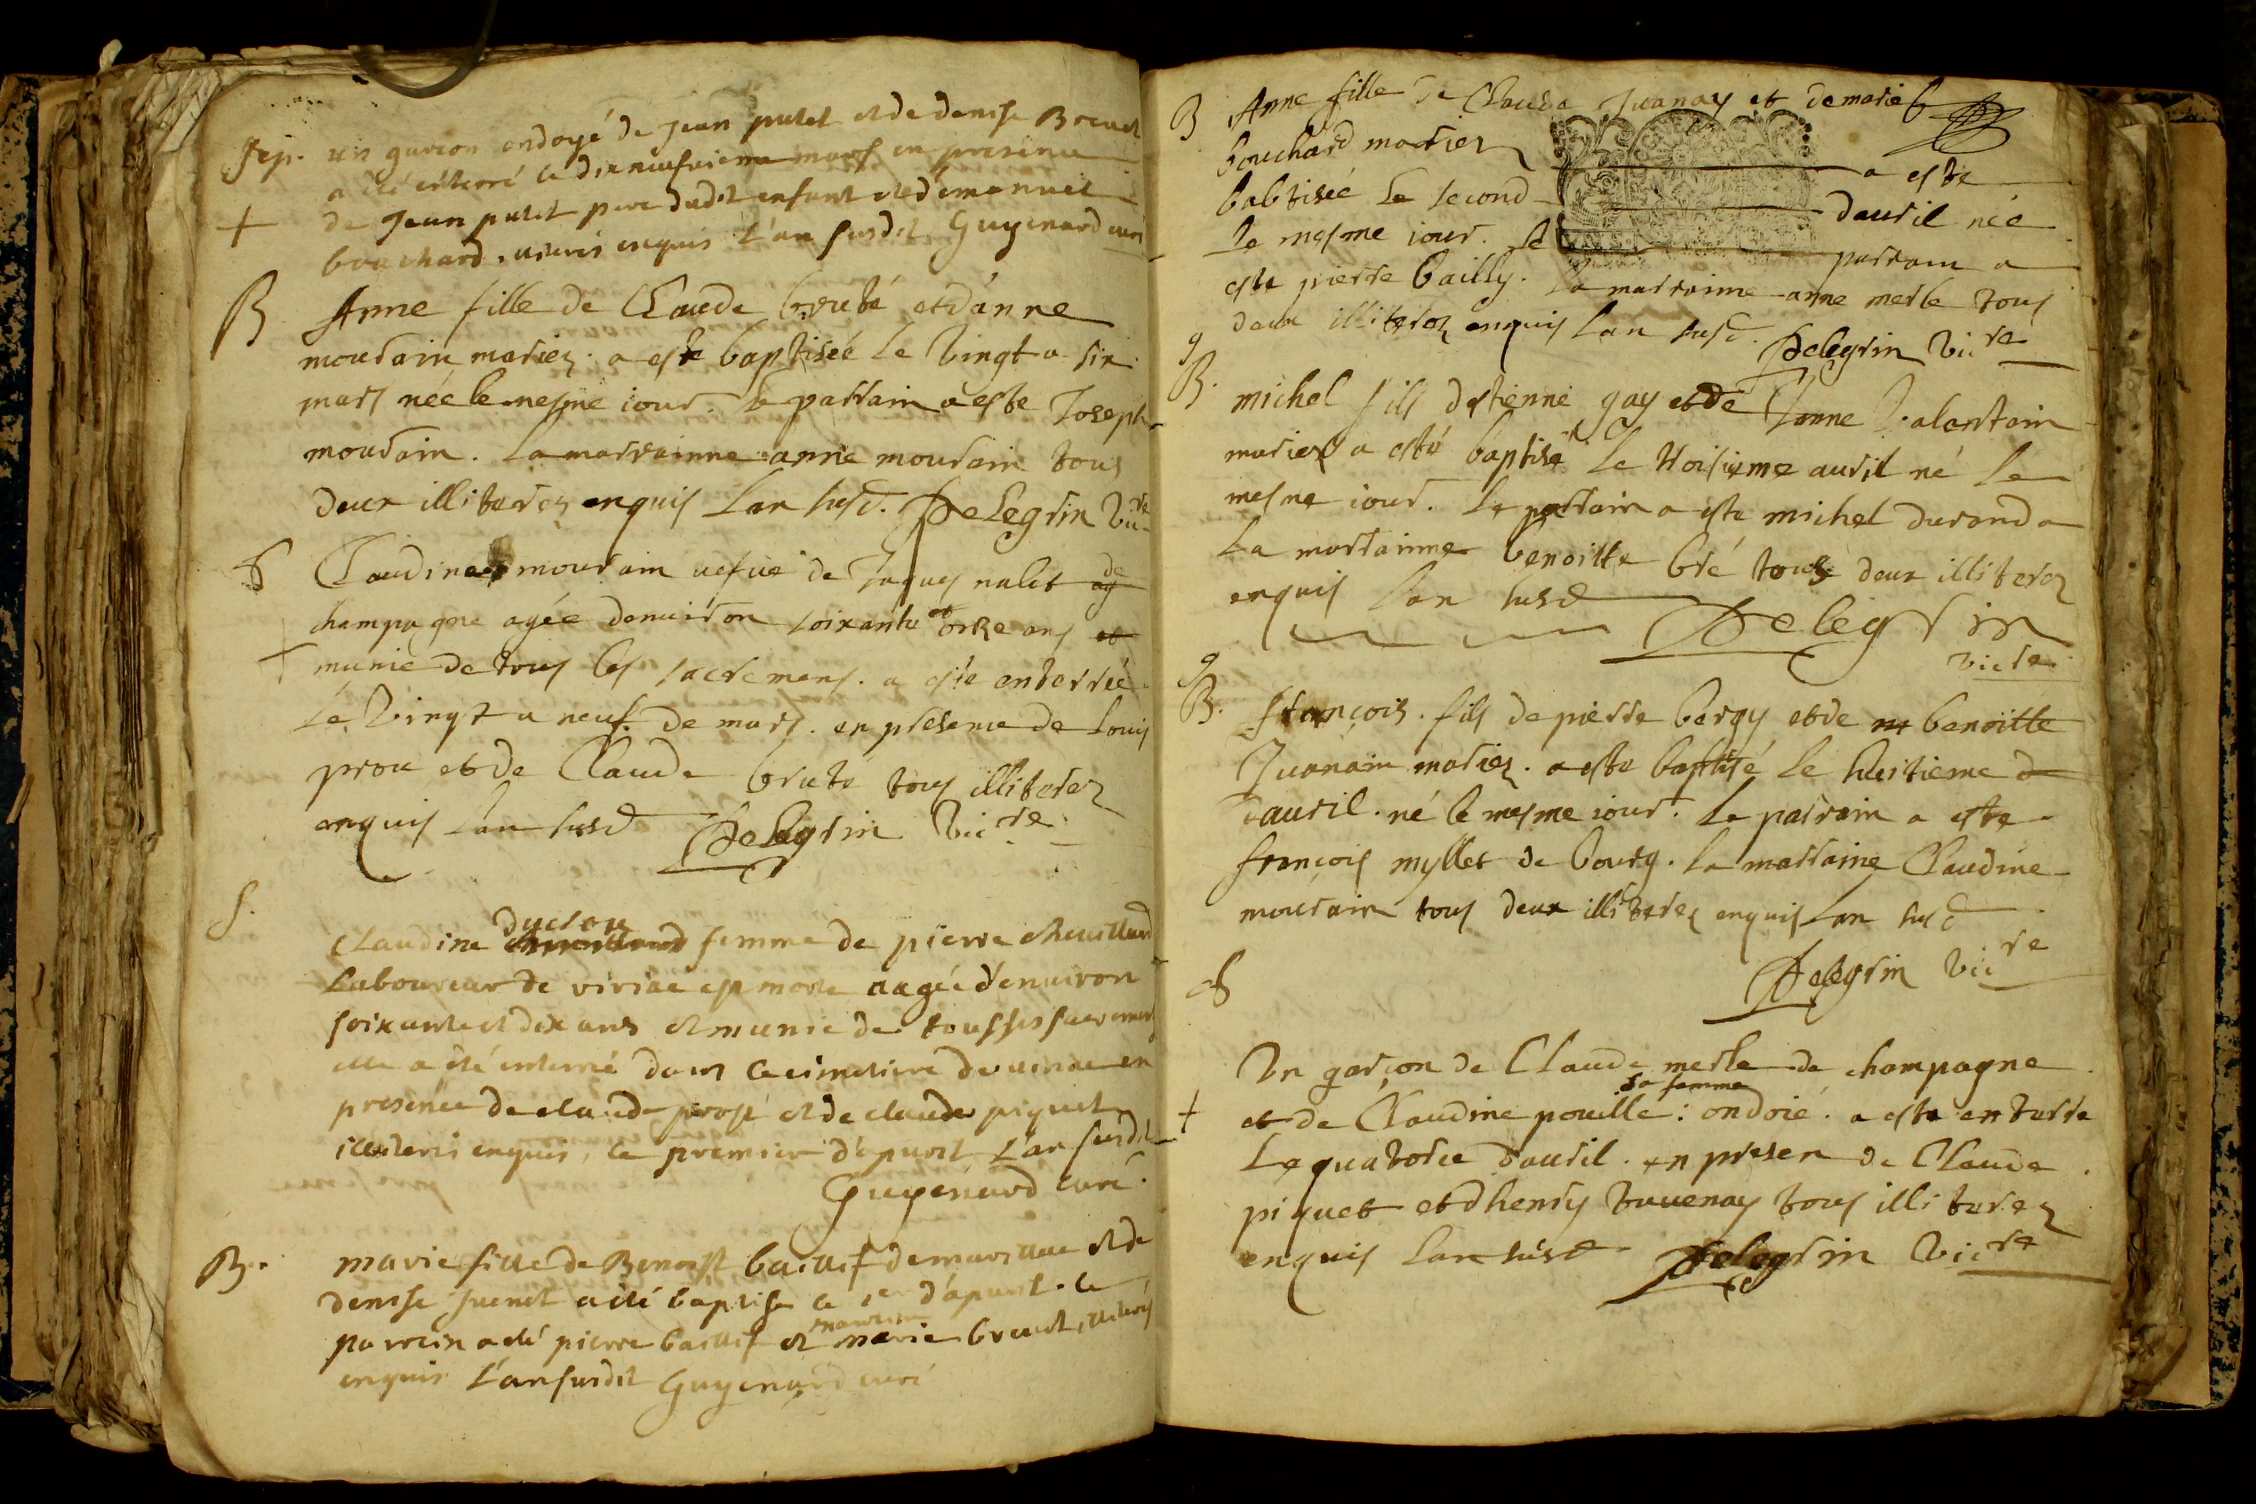 Sep. un garcon ondoyé de Jean putet et de denise Brevet
a été enterré le dix neufuieme mars en presence
+ de Jean putet pere dudit enfant et d'emanuel
bouchard, illiterés enquis l'an susdit Guyenard curé
B Anne fille de Claude bruté et d'anne
mourain mariez. a este baptisée le vingt a six
mars née le mesme iour. le parrain a este Joseph
mourain. la marrainne anne mourain tous
deux illiterez enquis lan susd. Pelegrin vic.re
S Claudine mourain uefue de Jaques nalet de
champagne agée denuiron soixante et onze ans et
+ munie de tous les sacremens. a este enterrée
le vingt a neuf de mars. en presence de louis
prou et de Claude bruté tous illiterez
enquis lan susd Pelegrin vic.re
S.
duclou
claudine femme de pierre cheuillard
laboureur de viriac est morte aagée d'enuiron
soixante et dix ans et munie de tous ses sacremens
elle a été enterré dans le cimetiere de uiriac en
presence de claude prost et de claude piquet
illiterés enquis, le premier d'apuril l'an susdit
Guyenard curé.
B. marie fille de Benoist baillif de marillac et de
denise Juenet a été baptisée le 1er d'apuril. le
maraine
parrein a été pierre baillif et marie brevet, illiterés
enquis l'an susdit Guyenard curé
B Anne fille de Claude Juanay et de marie b
bouchard mariez a este
babtisée le second dauril née
le mesme iour. le parrain a
este pierre bailly. la marrainne anne merle tous
deux illiterez enquis lan susd. Pelegrin vic.re
g
B. michel fils destienne gay et de Janne valentain
mariez a esté baptisé le troisieme auril né le
mesme iour. le parrain a este michel durand
la marrainne benoitte bré tous deux illiterez
enquis lan susd Pelegrin
vic.re
g
B. françois. fils de pierre bergy et de benoitte
Juanain mariez. a este baptisé le huitieme
dauril. né le mesme iour. le parrain a este
françois myllet de bourg. la marraine Claudine
mourain tous deux illiterez enquis lan susd
Pelegrin vic.re
S
Un garçon de Claude merle de champagne
sa femme
+ et de Claudine pouille: ondoié. a este enterre
le quatorze dauril. en presen de Claude
piquet et dhenry tuuenay tous illiterez
enquis lan susd Pelegrin vic.re